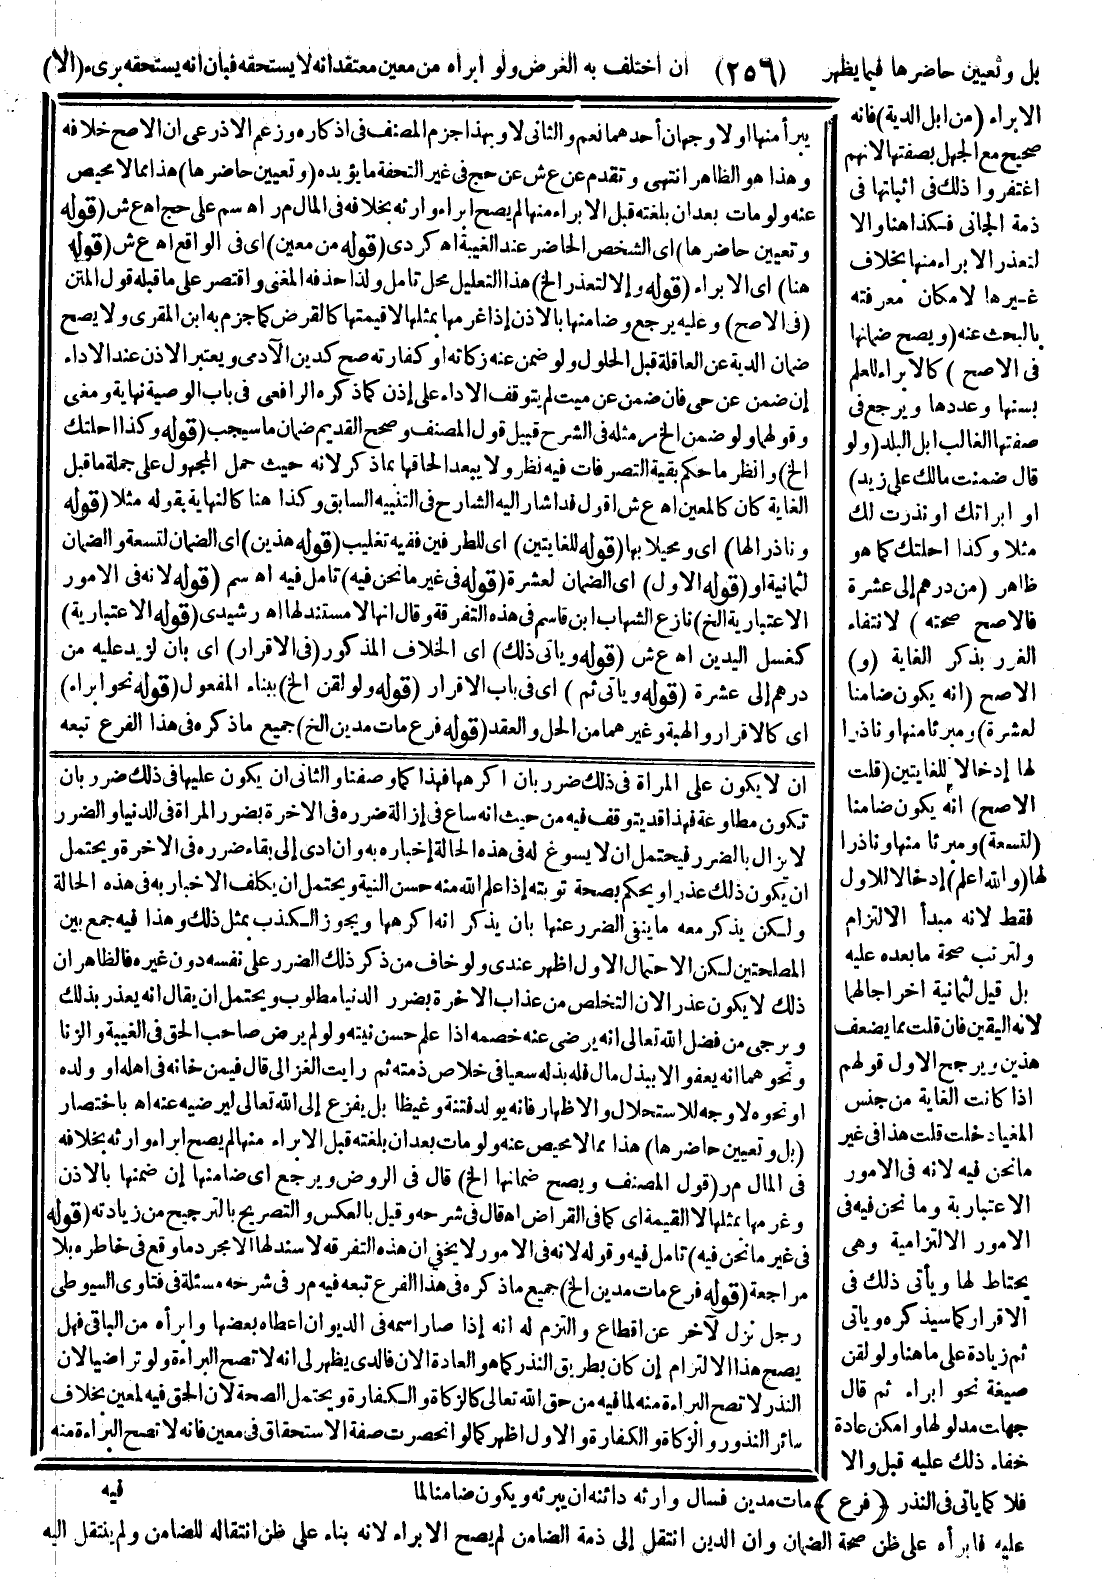 بل وتعيين حاضرها فيما يظهر (٢٥٦) ان اختلف به الغرض ولو ابراه من معين معتقدا انه لا يستحقه فبان انه يستحقه برىء (الا)
الابراء (من ابل الدية) فانه
صحيح مع الجهل بصفتها لانهم
اغتفروا ذلك فى اثباتها فى
ذمة الجانى فكذا هنا والا
لتعذر الابراء منها بخلاف
غيرها لامكان معرفته
بالبحث عنه (ويصح ضمانها
فى الاصح) كالابراء للعلم
بسنها وعددها ويرجع فى
صفتها الغالب ابل البلد (ولو
قال ضمنت مالك على زيد)
او ابراتك او نذرت لك
مثلا وكذا احلتك كما هو
ظاهر (من درهم إلى عشرة
فالاصح صحته) لانتفاء
الغرر بذكر الغاية (و)
الاصح (انه يكون ضامنا
لعشرة) ومبرئا منها وناذرا
لها إدخالا للغايتين (قلت
الاصح) انه يكون ضامنا
(لتسعة) ومبرئا منها وناذرا
لها (والله اعلم) إدخالا للاول
فقط لانه مبدأ الالتزام
ولترتب صحة ما بعده عليه
بل قيل لثمانية اخراجالهما
لانه اليقين فان قلت مما يضعف
هذين ويرجح الاول قولهم
اذا كانت الغاية من جنس
المغيا دخلت قلت هذا فى غير
ما نحن فيه لانه فى الامور
الاعتبارية وما نحن فيه فى
الامور الالتزامية وهى
يحتاط لها ويأتى ذلك فى
الاقرار كما سيذكره وياتى
ثم زيادة على ما هنا ولو لقن
صيغة نحو ابراء ثم قال
جهلت مدلولها وامكن عادة
خفاء ذلك عليه قبل والا
فلا كما ياتى فى النذر (فرع) مات مدين فسال وارثه دائنه ان يبرئه ويكون ضامنا لما
عليه فابرأه على ظن صحة الضمان وان الدين انتقل إلى ذمة الضامن لم يصح الابراء لانه بناء على ظن انتقاله للضامن ولم ينتقل اليه
يبرأ منها اولا وجهان أحدهما نعم والثانى لا وبهذا جزم المصنف فى اذكاره وزعم الاذرعى ان الاصح خلافه
وهذا هو الظاهر انتهى وتقدم عن ع ش عن حج فى غير التحفة ما يؤيده (وتعيين حاضرها) هذا مما لا محيص
عنه ولو مات بعد ان بلغته قبل الابراء منها لم يصح ابراء وارثه بخلافه فى المال م ر اه سم على حج اه ع ش (قوله
وتعيين حاضرها) اى الشخص الحاضر عند الغيبة اه كردى (قوله من معين) اى فى الواقع اه ع ش (قوله
هنا) اى الابراء (قوله وإلا لتعذر الخ) هذا التعليل محل تامل ولذا حذفه المغنى واقتصر على ما قبله قول المتن
(فى الاصح) وعليه يرجع وضامنها بالاذن إذا غرمها بمثلها لا قيمتها كالقرض كما جزم به ابن المقرى ولا يصح
ضمان الدية عن العاقلة قبل الحلول ولو ضمن عنه زكاته او كفارته صح كدين الآدمى ويعتبر الاذن عند الاداء
إن ضمن عن حى فان ضمن عن ميت لم يتوقف الاداء على إذن كما ذكره الرافعى فى باب الوصية نهاية ومغنى
وقولهما ولو ضمن الخ مر مثله فى الشرح قبيل قول المصنف وصحح القديم ضمان ما سيجب (قوله وكذا احلتك
الخ) وانظر ما حكم بقية التصرفات فيه نظر ولا يبعد الحاقها بما ذكر لانه حيث حمل المجهول على جملة ما قبل
الغاية كان كالمعين اه ع ش اقول قد اشار اليه الشارح فى التنبيه السابق وكذا هنا كالنهاية بقوله مثلا (قوله
وناذرا لها) اى ومحيلا بها (قوله للغايتين) اى للطرفين ففيه تغليب (قوله هذين) اى الضمان لتسعة والضمان
لثمانية او (قوله الاول) اى الضمان لعشرة (قوله فى غير ما نحن فيه) تامل فيه اه سم (قوله لانه فى الامور
الاعتبارية الخ) نازع الشهاب ابن قاسم فى هذه التفرقة وقال انها لا مستند لها اه رشيدى (قوله الاعتبارية)
كغسل اليدين اه ع ش (قوله ويأتى ذلك) اى الخلاف المذكور (فى الاقرار) اى بان لزيد عليه من
درهم إلى عشرة (قوله وياتى ثم) اى فى باب الاقرار (قوله ولو لقن الخ) ببناء المفعول (قوله نحو ابراء)
اى كالاقرار والهبة وغيرهما من الحل والعقد (قوله فرع مات مدين الخ) جميع ما ذكره فى هذا الفرع تبعه
ان لا يكون على المراة فى ذلك ضرر بان اكرهها فهذا كما وصفنا والثانى ان يكون عليها فى ذلك ضرر بان
تكون مطاوعة فهذا قد يتوقف فيه من حيث انه ساع فى إزالة ضرره فى الاخرة بضرر المراة فى الدنيا والضرر
لا يزال بالضرر فيحتمل ان لا يسوغ له فى هذه الحالة إخباره به وان ادى إلى بقاء ضرره فى الاخرة ويحتمل
ان يكون ذلك عذرا ويحكم بصحة توبته إذا علم الله منه حسن النية ويحتمل ان يكلف الاخبار به فى هذه الحالة
ولكن يذكر معه ما ينفى الضرر عنها بان يذكر انه اكرهها ويجوز الكذب بمثل ذلك وهذا فيه جمع بين
المصلحتين لكن الاحتمال الاول اظهر عندى ولو خاف من ذكر ذلك الضرر على نفسه دون غيره فالظاهر ان
ذلك لا يكون عذر الان التخلص من عذاب الاخرة بضرر الدنيا مطلوب ويحتمل ان يقال انه يعذر بذلك
ويرجى من فضل الله تعالى انه يرضى عنه خصمه اذا علم حسن نيته ولو لم يرض صاحب الحق فى الغيبة والزنا
ونحوهما انه يعفو الا ببذل مال فله بذله سعيا فى خلاص ذمته ثم رايت الغزالى قال فيمن خانه فى اهله او ولده
او نحوه لا وجه للاستحلال والاظهار فانه يولد فتنة وغيظا بل يفزع إلى الله تعالى ليرضيه عنه اه باختصار
(بل وتعيين حاضرها) هذا مما لا محيص عنه ولو مات بعد ان بلغته قبل الابراء منها لم يصح ابراء وارثه بخلافه
فى المال م ر (قول المصنف ويصح ضمانها الخ) قال فى الروض ويرجع اى ضامنها إن ضمنها بالاذن
وغرمها بمثلها لا القيمة اى كما فى القراض اه قال فى شرحه وقيل بالعكس والتصريح بالترجيح من زيادته (قوله
فى غير ما نحن فيه) تامل فيه وقوله لانه فى الامور لا يخفى ان هذه التفرقة لا سند لها الا مجرد ما وقع فى خاطره بلا
مراجعة (قوله فرع مات مدين الخ) جميع ما ذكره فى هذا الفرع تبعه فيه م ر فى شرحه مسئلة فى فتاوى السيوطى
رجل نزل لآخر عن اقطاع والتزم له انه إذا صار اسمه فى الديوان اعطاه بعضها وابرأه من الباقى فهل
يصح هذا الالتزام إن كان بطريق النذر كما هو العادة الان فالذى يظهر لى انه لا تصح البراءة ولو تراضيا لان
النذر لا تصح البراءة منه لما فيه من حق الله تعالى كالزكاة والكفارة ويحتمل الصحة لان الحق فيه لمعين بخلاف
سائر النذور والزكاة والكفارة والاول اظهر كما لو انحصرت صفة الاستحقاق فى معين فانه لا تصح البراءة منه
فيه